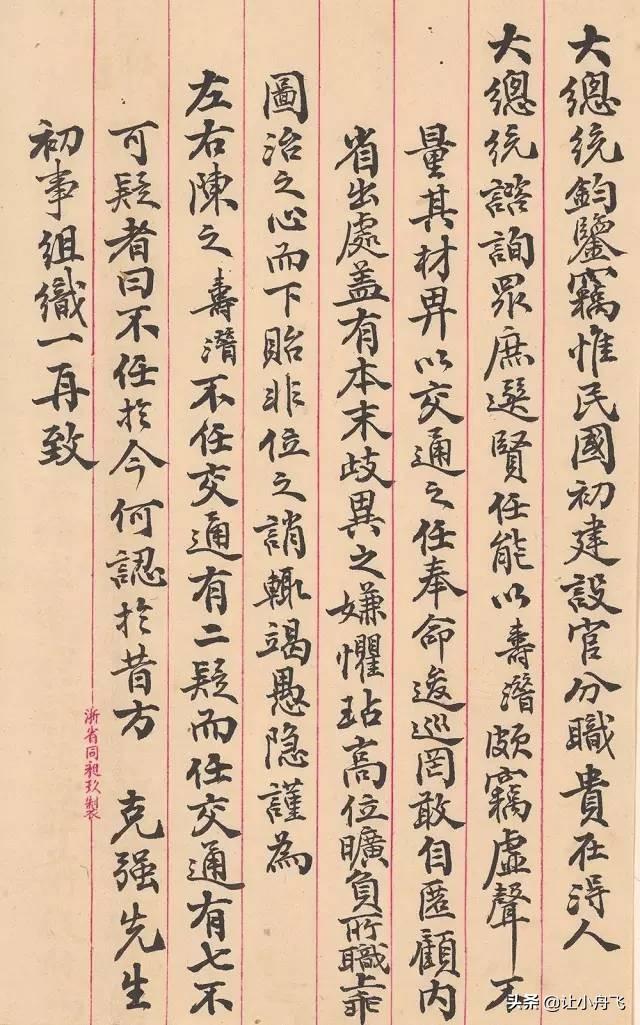 大總統鈞鑒竊惟民國初建設官分職貴在得人
大總統諮詢眾庶選賢任能以壽潛頗竊虛聲不
量其材畀以交通之任奉命逡巡罔敢自匿顧內
省出處蓋有本末歧異之嫌懼玷高位曠負所職上乖
圖治之心而下貽非位之誚輒竭愚隱謹為
左右陳之壽潛不任交通有二疑而任交通有七不
可疑者曰不任於今何認於昔方 克强先生
初事組織一再致
浙省同昶玖製
头条 @让小舟飞